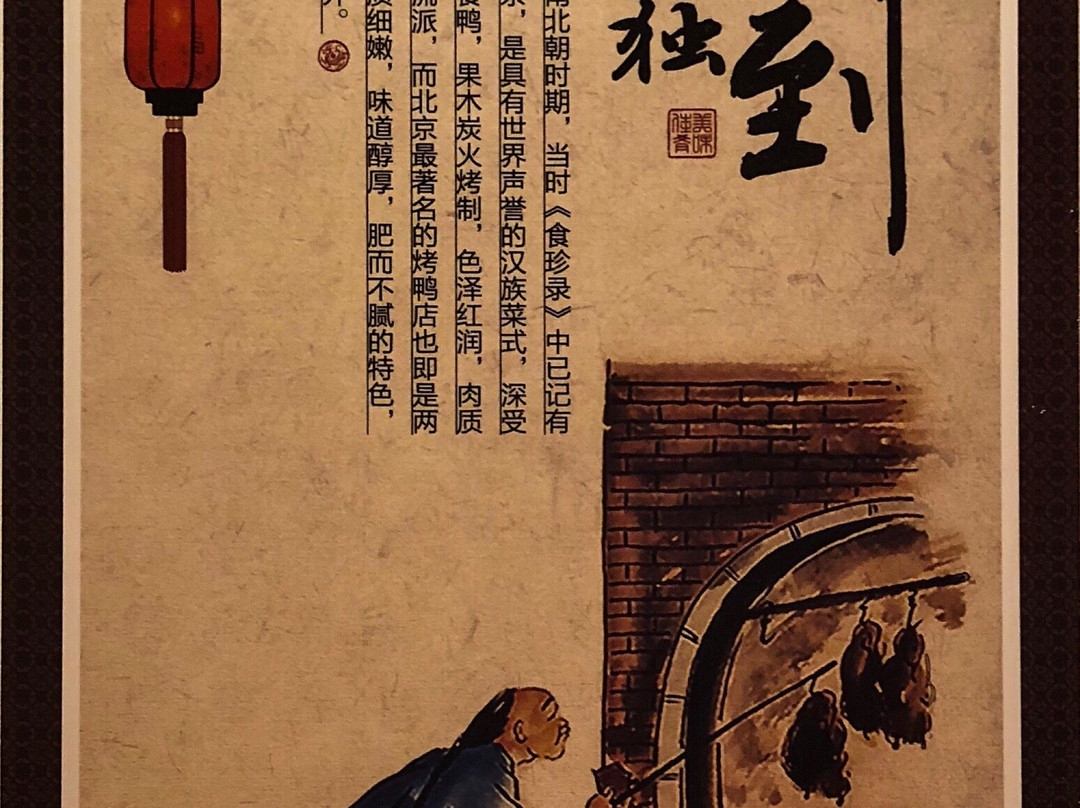 独到
美味
佳肴
南北朝时期，当时《食珍录》中已记有
，是具有世界声誉的汉族菜式，深受
食鸭，果木炭火烤制，色泽红润，肉质
流派，而北京最著名的烤鸭店也即是两
质细嫩，味道醇厚，肥而不腻的特色，
。